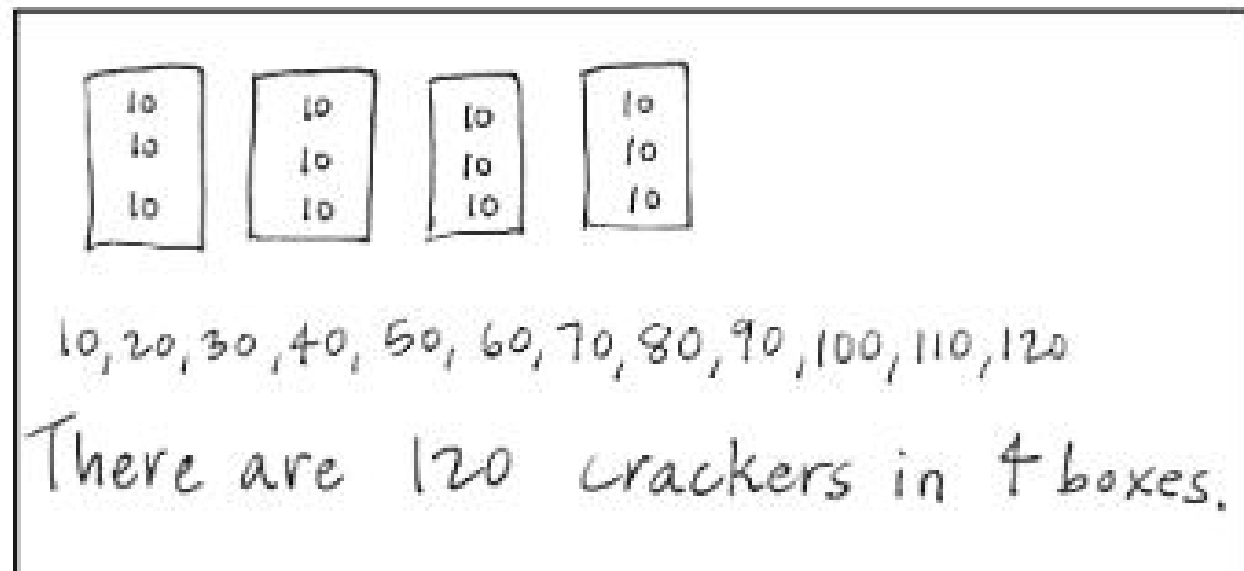 10 10 10 10
10 10 10 10
10 10 10 10
10, 20, 30, 40, 50, 60, 70, 80, 90, 100, 110, 120
There are 120 crackers in 4 boxes.